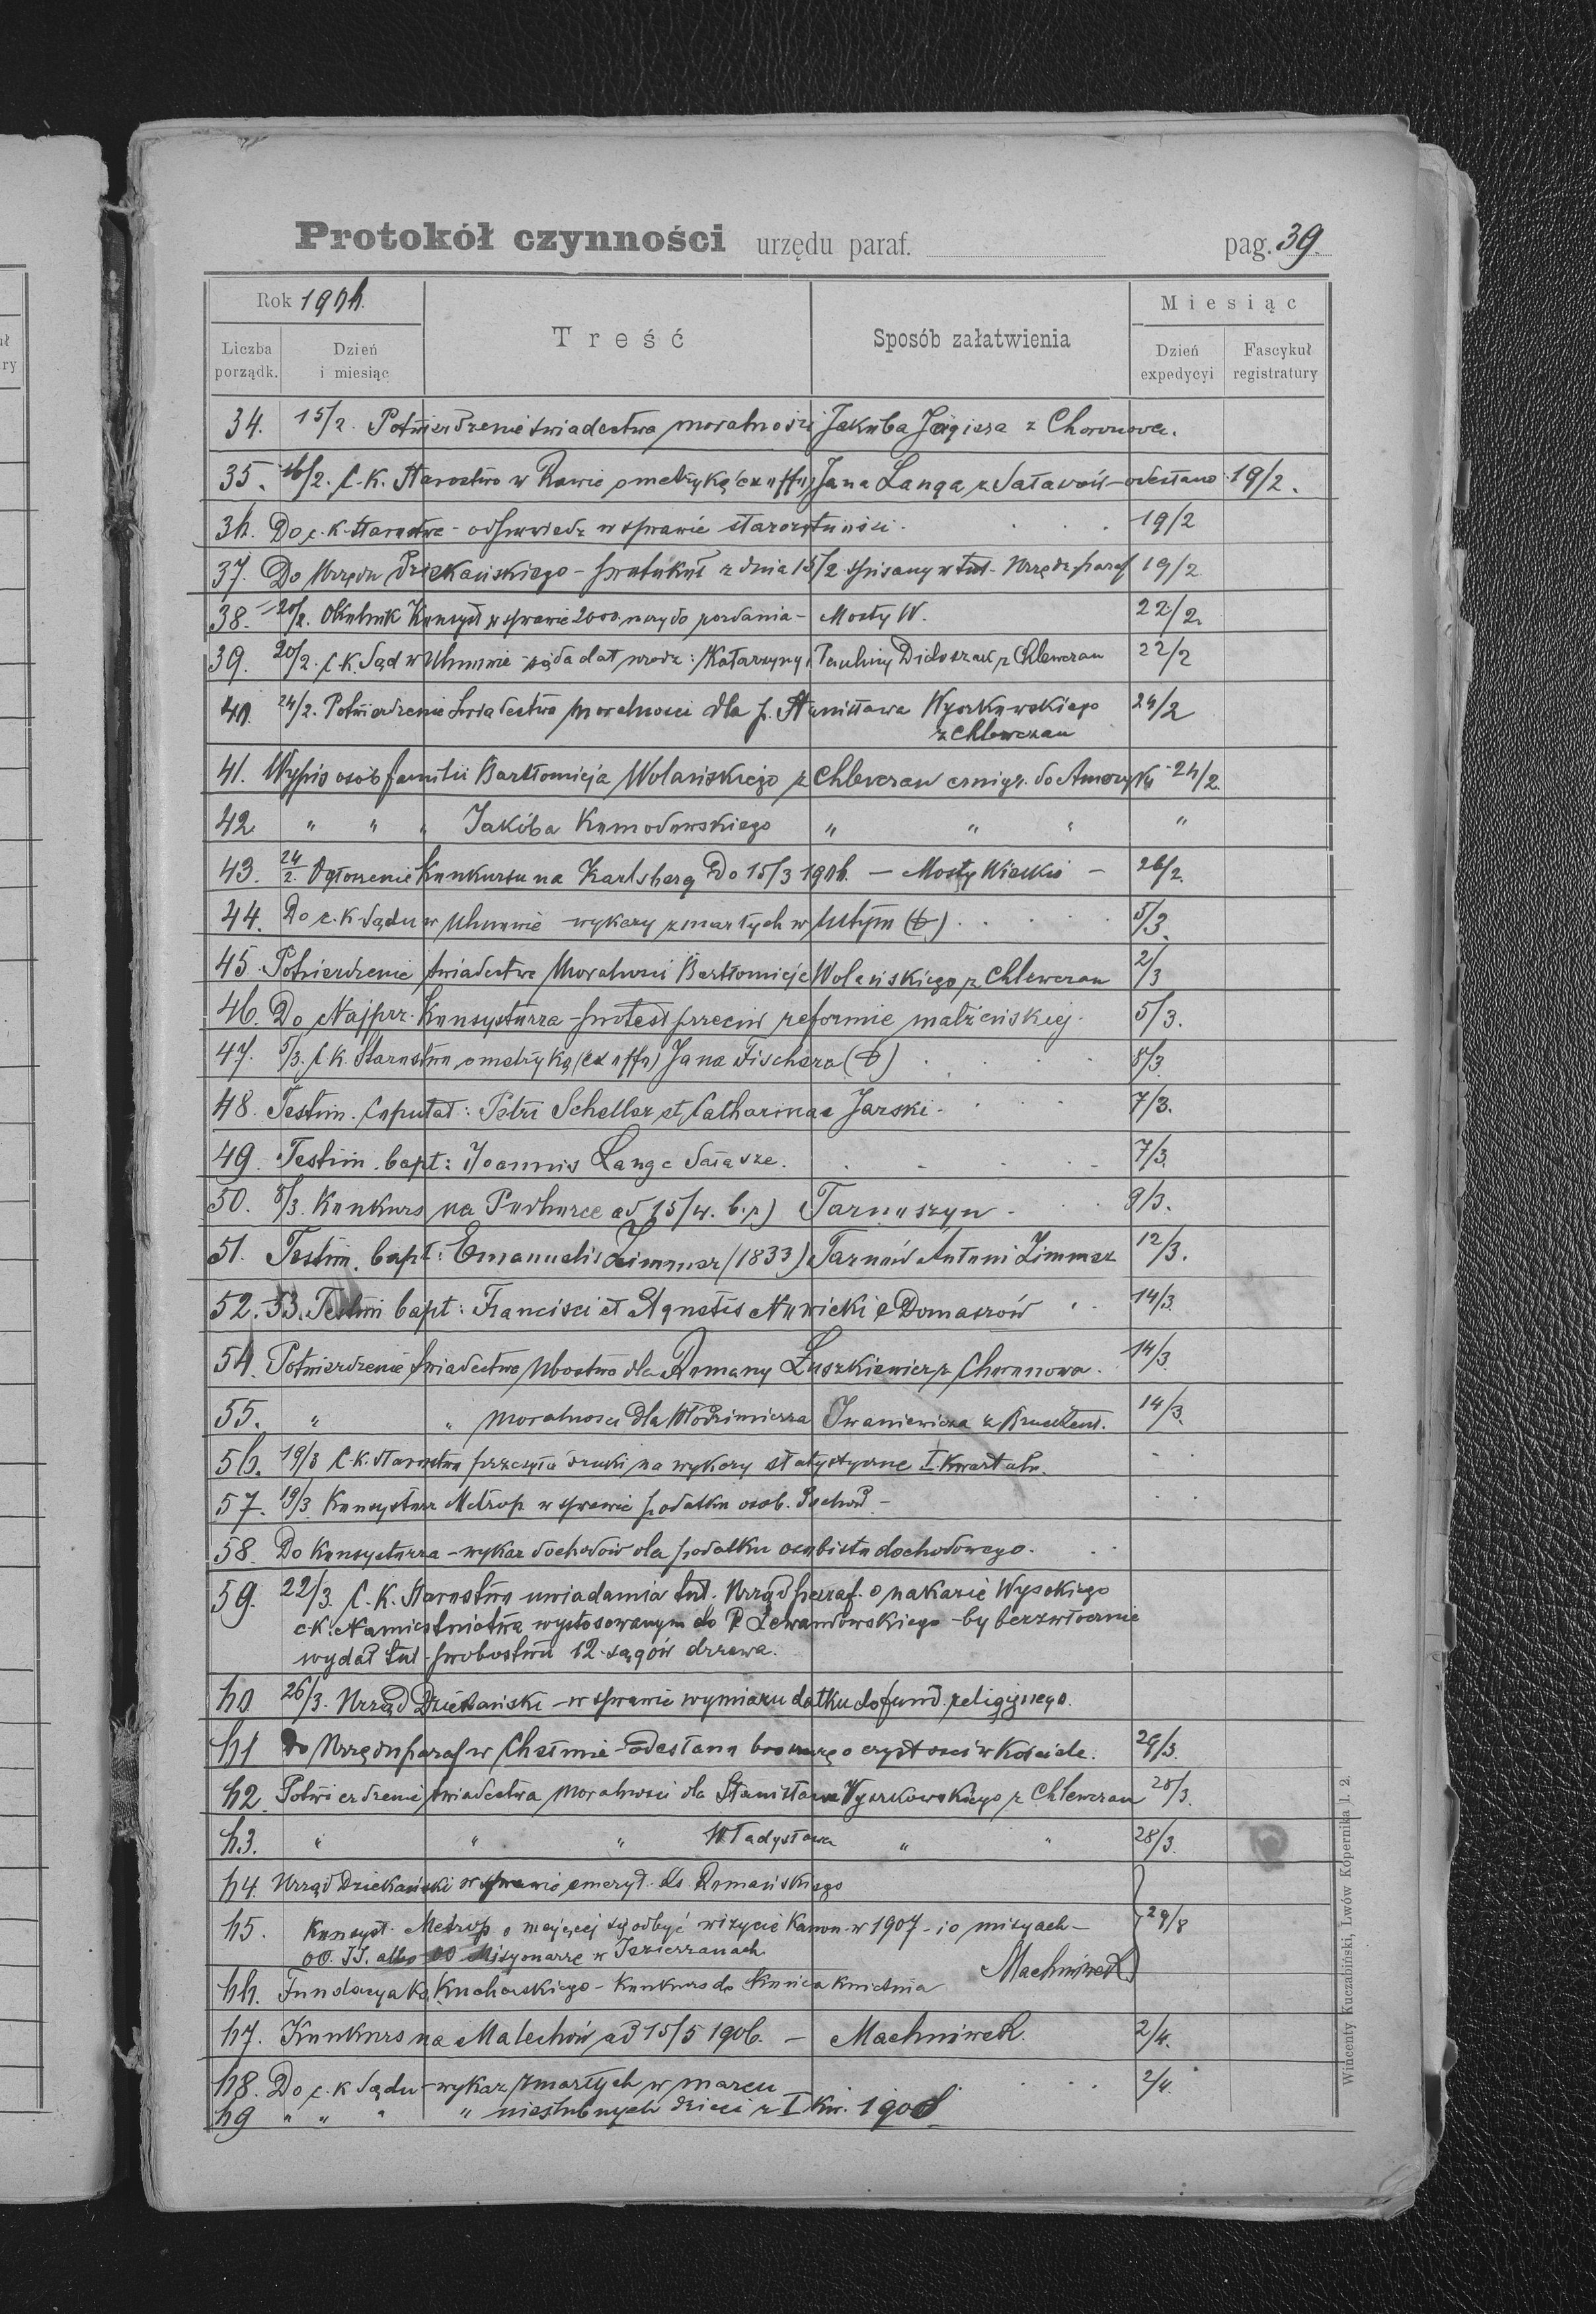 Protokół czynności urzędu paraf. pag. 39.
Rok 1906.
Miesiąc
Treść
Sposób załatwienia
Liczba porządk.
Dzień i miesiąc
Dzień expedycyi
Fascykuł registratury
34. 15/2. Potwierdzenie świadectwa moralności Jakuba Jägiera z Choronowa.
35. 16/2. C. K. Starostwo w Rawie o metrykę (ex offo) Jana Langa z Sałaszów - odesłano 19/2.
36. Do c. k. Starostwa - odpowiedz w sprawie starożytności. 19/2
37. Do Urzędu Dziekańskiego - protokuł z dnia 15/2 spisany w tut. Urzędz. paraf 19/2
38. 20/2. Okólnik Konsyst w sprawie 2000. - Mosty W. 22/2
39. 20/2. C. K. Sąd w Uhnowie - żąda dat urodz: Katarzyny i Pauliny Didoszak z Chlewczan 22/2
40. 24/2. Potwierdzenie świadectwa moralności dla p. Stanisława Wyszkowskiego 24/2
z Chlewczan
41. Wypis osób familii Bartłomieja Wolańskiego z Chlewczan emigr. do Ameryki - 24/2.
42 " " " Jakóba Komodowskiego " " " "
43. 24/2. Ogłoszenie Konkursu na Karlsberg Do 15/3 1906. - Mosty Wielkie - 26/2.
44. Do c. k. Sądu w Uhnowie wykazy zmarłych w lutym 5/3.
45 Potwierdzenie świadectwa Moralności Bartłomieja Wolańskiego z Chlewczan 2/3
46. Do Najprz. Konsystorza - protest przeciw reformie małżeńskiej. 5/3.
47. 5/3. C. K. Starostwo o metrykę (ex offo) Jana Fischera 5/3.
48. Testim. Copulat: Petri Scheller et Catharinae Jarski. 7/3.
49. Testim. bapt: Joannis Lang e Sałasze. 7/3.
50. 8/3. Konkurs na Podhorce ad 15/4. b. r) Tarnoszyn 9/3.
51. Testim. bapt: Emanuelis Zimmer (1833) Tarnów Antoni Zimmer 12/3.
52. 53. Testim bapt: Francisci et Agnetis Nowicki e Domaszów 14/3.
54. Potwierdzenie świadectwa Ubostwa dla Romany Łuszkiewicz z Choronowa. 14/3.
55. " " moralności dla Włodzimierza Iwaniewicza z Bruckent. 14/3.
56. 19/3 C. K. Starostwo przesyła druki na wykazy statystyczne I Kwartału.
57. 19/3. Konsystorz Metrop. w sprawie podatku osob. Dochod -
58. Do Konsystorza - wykaz dochodów dla podatku osobisto dochodowego.
59. 22/3. C. K. Starostwo uwiadamia tut. Urząd paraf. o nakazie Wysokiego
c. k. Namiestnictwa wystosowanym do P. Lewandowskiego - by bezzwłocznie
wydał tut. probostwu 12. sągów drzewa.
60 26/3. Urząd Dziekański - w sprawie wymiaru datku do fund. religijnego.
61 Do Urzędu paraf w Chełmie - odesłano broszurę o czystości w Kościele. 29/3.
62. Potwierdzenie świadectwa Moralności dla Stanisława Wyszkowskiego z Chlewczan 28/3.
63. " " " Władysława " " 28/3.
64. Urząd Dziekański w sprawie emeryt. Ks. Romańskiego
65. Konsyst. Metrop o mającej się odbyć wizycie Kanon. w 1907 - i o misyach - 29/3
OO. JJ. albo OO Misyonarze w Jezierzanach
Machnówek
66. Fundacya Ks. Kucharskiego - Konkurs do Końca kwietnia
67. Konkurs na Malechów ad 15/5 1906. - Machnówek. 2/4.
68. Do c. k Sądu - wykaz zmarłych w marcu 2/4.
69 " " " " nieślubnych dzieci z I kw. 1906
Wincenty Kuczabiński, Lwów Kopernika l. 2.